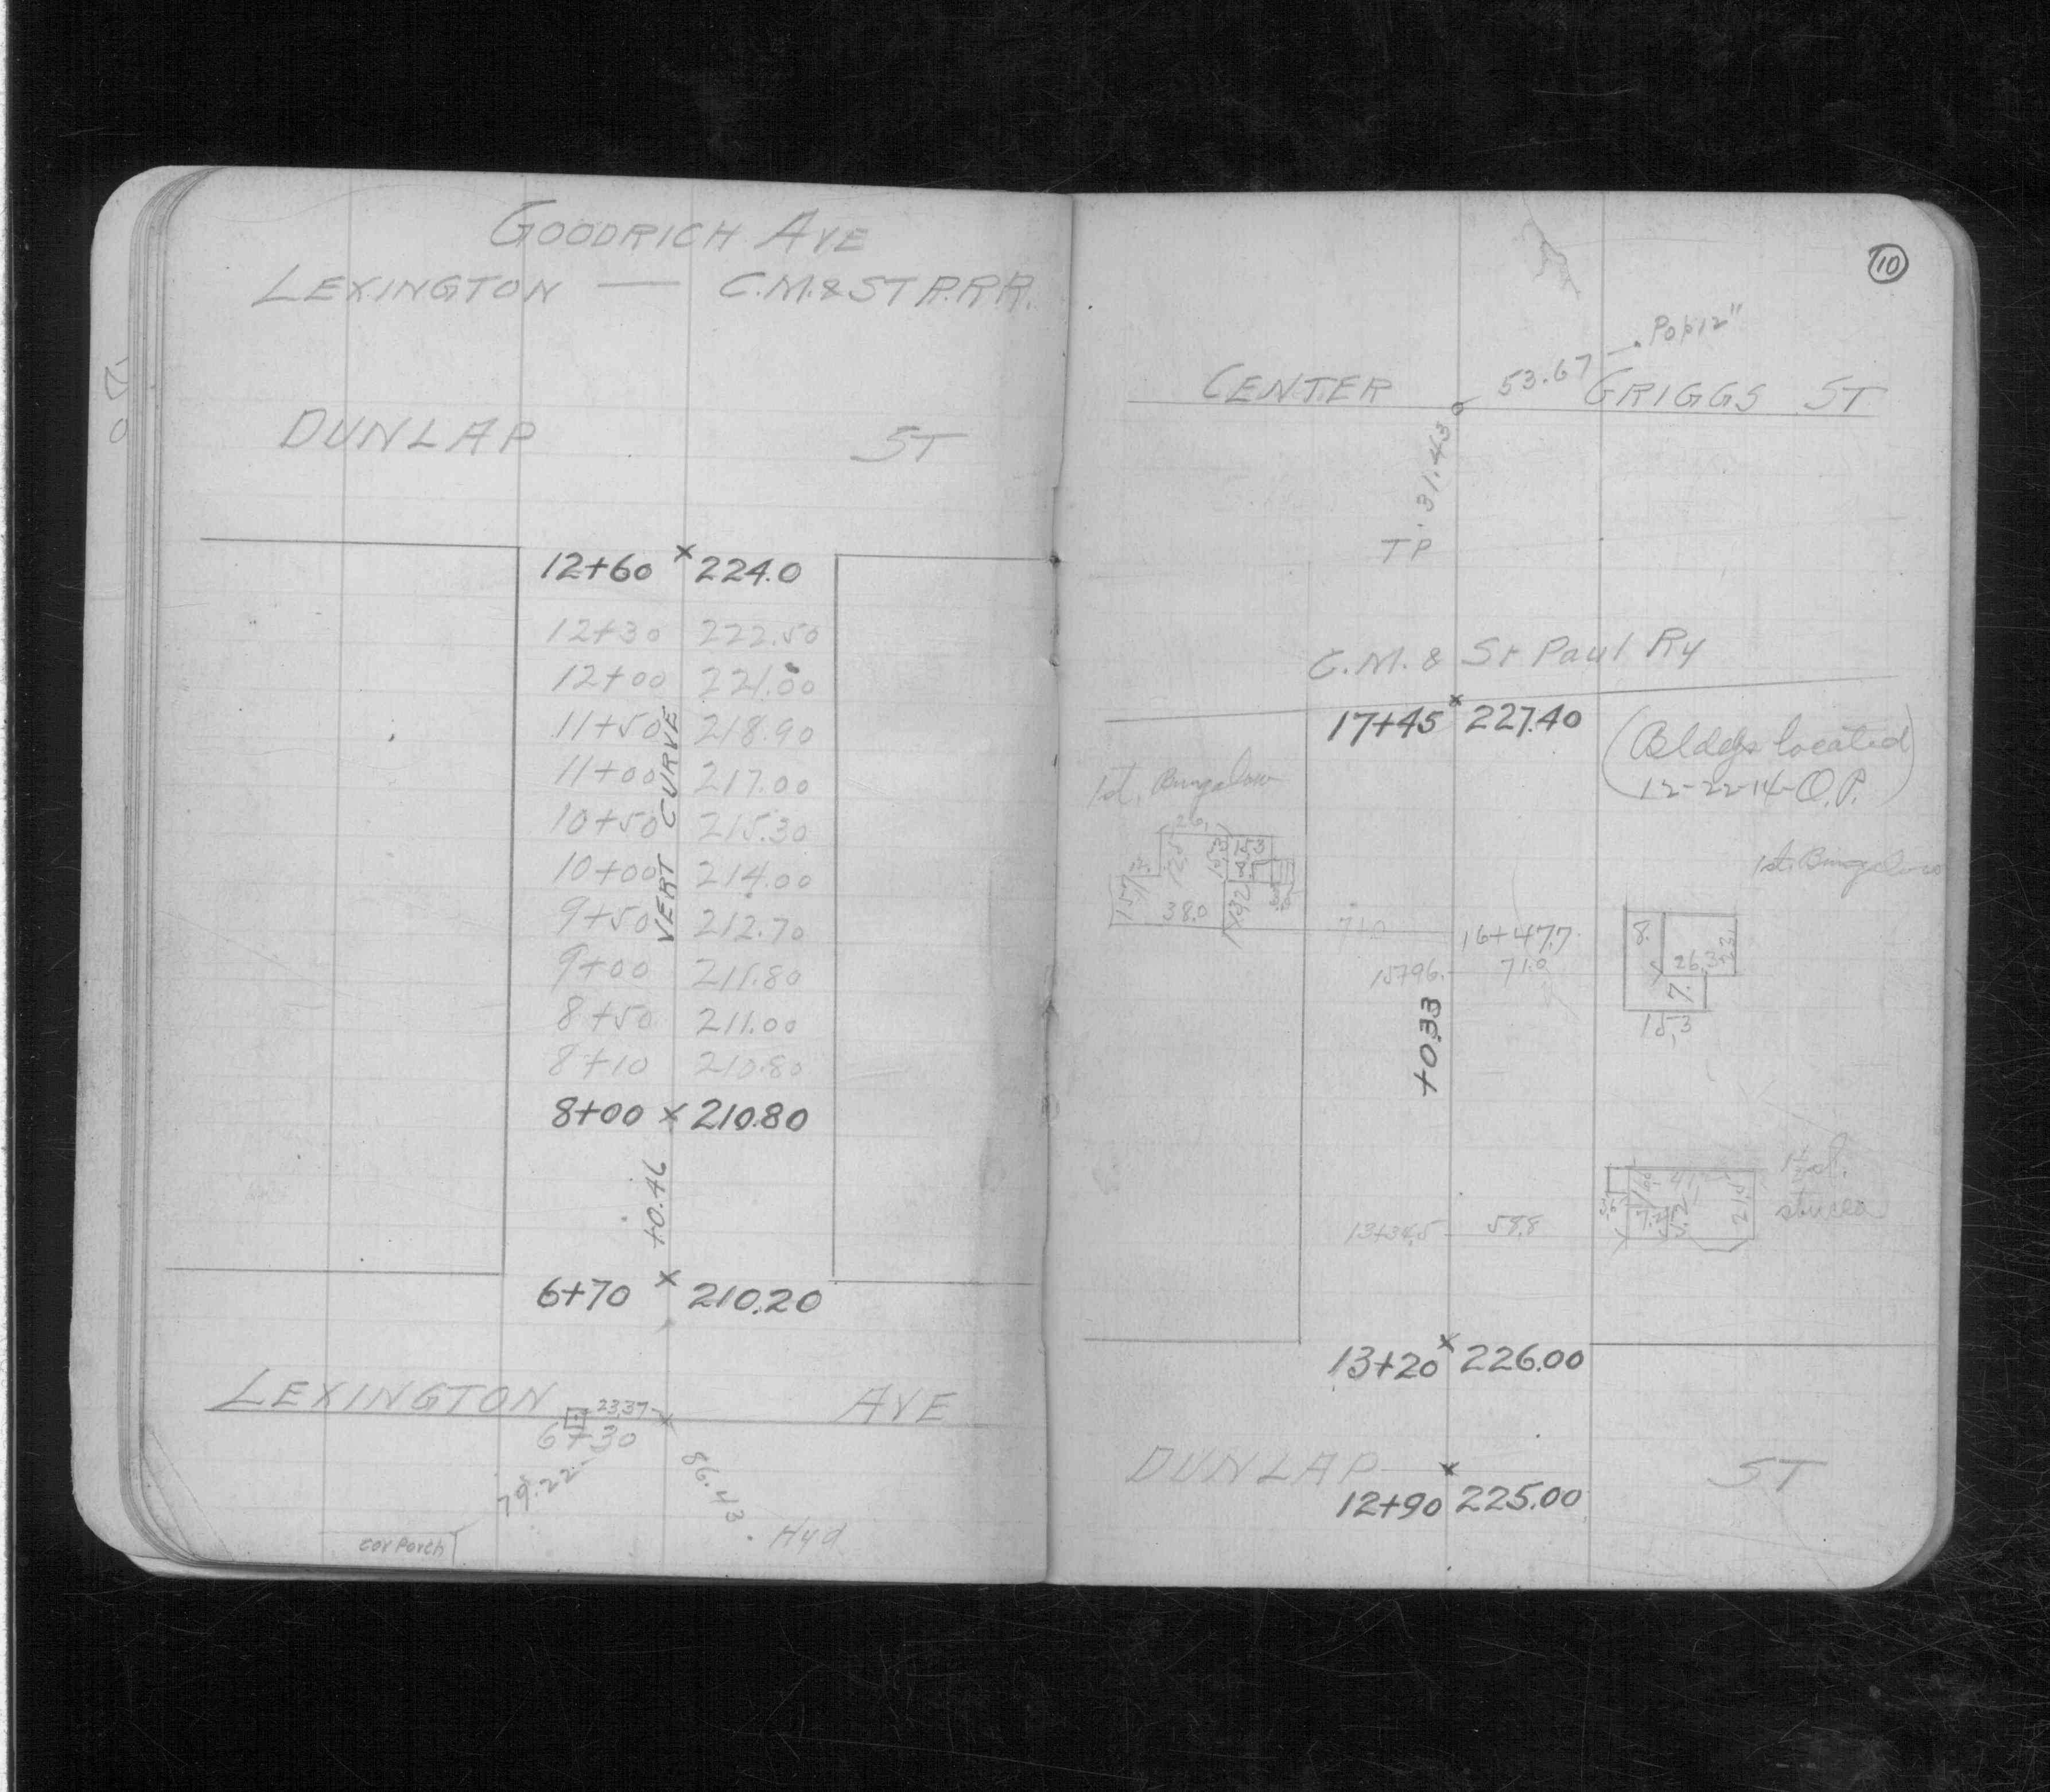 GOODRICH AVE
LEXINGTON — C.M.& ST P.R.R.
DUNLAP ST
12+60 x 224.0
12+30 222.50
12+00 221.00
11+50 218.90
11+00 217.00
10+50 215.30
10+00 214.00
9+50 212.70
9+00 211.80
8+50 211.00
8+10 210.80
VERT CURVE
8+00 x 210.80
+0.46
6+70 x 210.20
LEXINGTON AVE
23.37
6+30
79.22
86.43
Cor Porch
Hyd
10
Pop 12"
53.67
CENTER GRIGGS ST
31.43
TP
C.M. & St Paul Ry
17+45 x 227.40
(Bldgs located
12-22-14-O.P.)
1st. Bungalow
26.
12.
12.5
15.3
15.3
15.7
38.0
13.2
71.0
16+47.7
1st. Bungalow
15796.
71.0
8.
26.3
23.
7.
15.3
+0.33
1½ st.
stucco
41.
21.5
7.2
5.2
13+34.5 58.8
13+20 x 226.00
DUNLAP ST
12+90 x 225.00